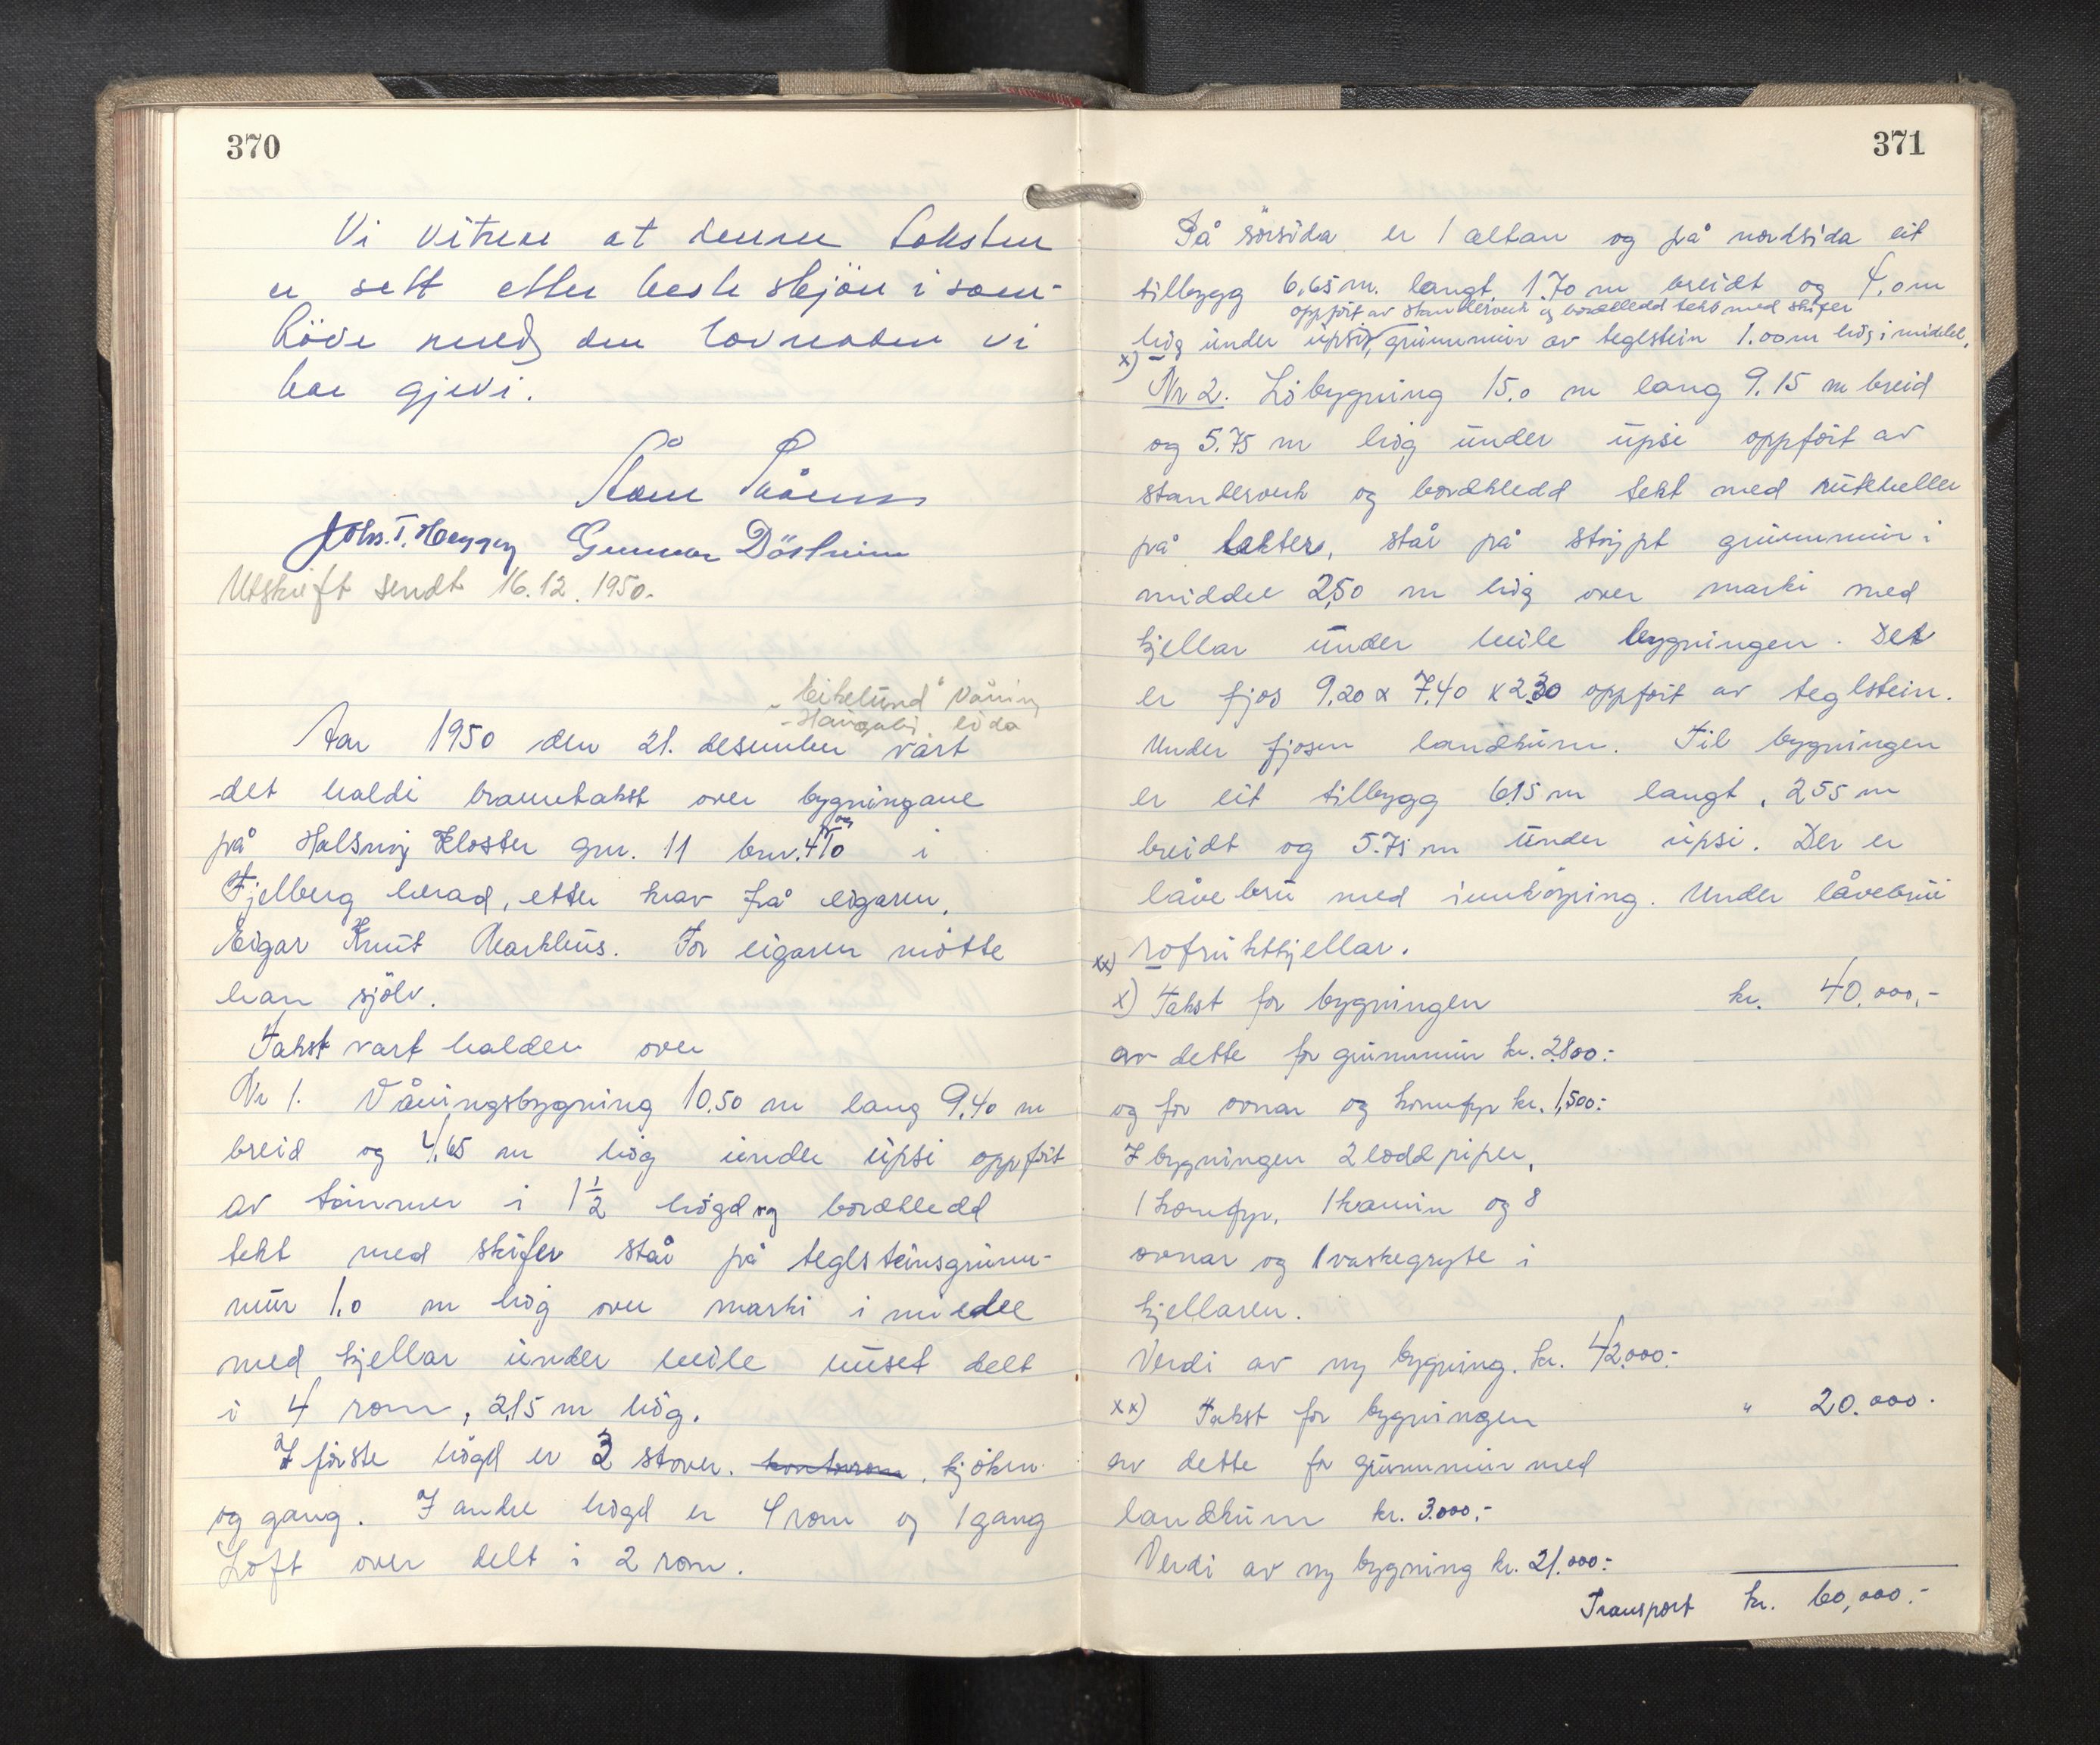 370
Vi vitnar at denne taksten
er sett etter beste skjön i sam-
höve med den lovnaden vi
har gjevi.
Johs. T. Gunnar
Utskrift sendt 16.12.1950.
"Eikelund" Våning
löda
Aar 1950 den 21. desember vart
det haldi branntakst over bygningane
på Halsnöy Kloster gnr. 11 bnr. 4 og 10 i
Fjelberg herad, etter krav frå eigaren.
Eigar Knut Markhus. For eigaren mötte
han sjölv.
Takst vart halden over
Nr 1. Våningsbygning 10.50 m lang 9.40 m
breid og 4,65 m hög under upsi oppfört
av tömmer i 1½ högd og bordkledd
tekt med skifer står på teglsteinsgrunn-
mur 1.0 m hög over marki i middel
med kjellar under heile huset delt
i 4 rom, 2,15 m hög.
I förste högd er 3 stover. kontorrom, kjöken
og gang. I andre högd er 4 rom og 1 gang
Loft over delt i 2 rom.
371
På sörsida er 1 altan og på nordsida eit
tilbygg 6,65 m. langt 1.70 m breidt og 4.0 m
oppfört av standerverk og bordkledd tekt med skifer
hög under upsi, grunnmur av teglstein 1.00 m hög i middel.
x)
Nr 2. Löbygning 15.0 m lang 9.15 m breid
og 5.75 m hög under upsi oppfört av
standerverk og bordkledd tekt med rutheller
på lekter, står på stöypt grunnmur i
middel 2,50 m hög over marki med
kjellar under heile bygningen. Det
er fjos 9.20 x 7.40 x 2.30 oppfört av teglstein.
Under fjosen landkum. Til bygningen
er eit tilbygg 6,15 m langt, 2.55 m
breidt og 5.75 m under upsi. Der er
låvebru med innköyring. Under låvebrui
xx) rotfruktkjellar.
x) Takst for bygningen kr. 40.000,-
av dette for grunnmur kr. 2800:-
og for ovnar og komfyr kr. 1,500:-
I bygningen 2 lodd piper,
1 komfyr, 1 kamin og 8
ovnar og 1 vaskegryte i
kjellaren.
Verdi av ny bygning. kr. 42.000:-
xx) Takst for bygningen " 20.000.
av dette for grunnmur med
landkum kr. 3.000,-
Verdi av ny bygning kr. 21.000:-
Transport kr. 60,000.-